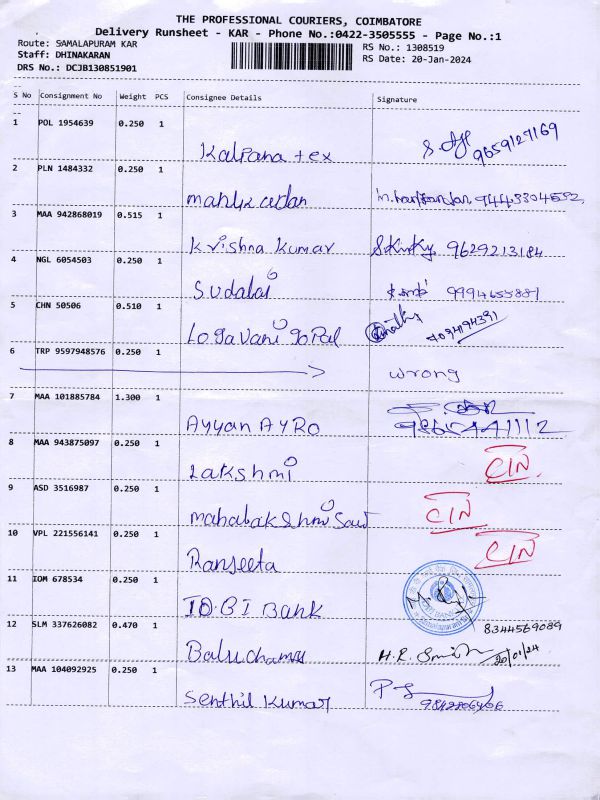 THE PROFESSIONAL COURIERS, COIMBATORE
Delivery Runsheet - KAR - Phone No.:0422-3505555 - Page No.:1
Route: SAMALAPURAM KAR
RS No.: 1308519
Staff: DHINAKARAN
RS Date: 20-Jan-2024
DRS No.: DCJB130851901
S No Consignment No Weight PCS Consignee Details Signature
1 POL 1954639 0.250 1
Kalpana tex 9659127169
2 PLN 1484332 0.250 1
3 MAA 942868019 0.515 1
Krishna Kumar 9629213184
4 NGL 6054503 0.250 1
Sudalai 9994655881
5 CHN 50506 0.510 1
Logavani gopal
6 TRP 9597948576 0.250 1
wrong
7 MAA 101885784 1.300 1
Ayyan AYRO
8 MAA 943875097 0.250 1
Lakshmi CIN
9 ASD 3516987 0.250 1
CIN
10 VPL 221556141 0.250 1
Ranjeeta CIN
11 IOM 678534 0.250 1
IDBI Bank
8344569089
12 SLM 337626082 0.470 1
H.R. 20/01/24
13 MAA 104092925 0.250 1
Senthil Kumar